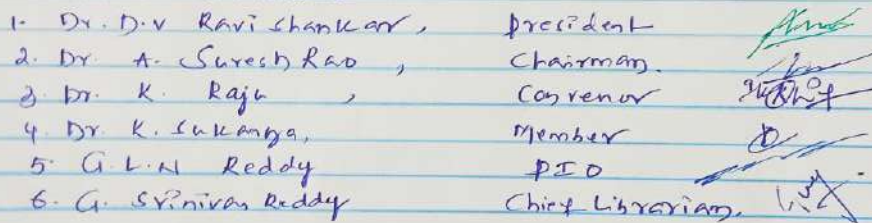 1. Dr. D.V Ravi shankar, president
2. Dr. A. Suresh Rao, Chairman.
3. Dr. K. Raju, Convenor
4. Dr. K. Sukanya, Member
5. G.L.N Reddy PIO
6. G. Srinivas Reddy Chief Librarian.